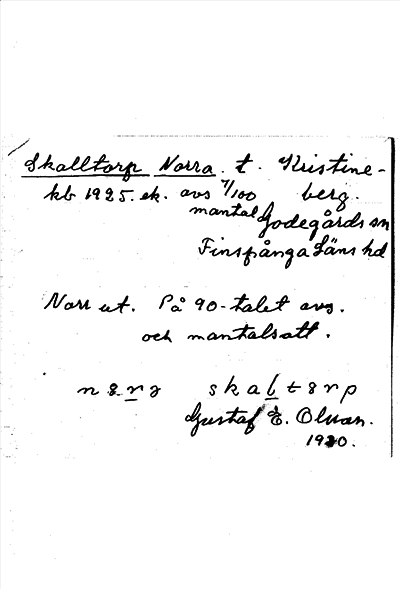 Skalltorp Norra t. Kristine-
kb 1925. ek. avs 7/100 berg.
mantal Godegårds sn
Finspånga Läns hd
Norr ut. På 90-talet avs.
och mantalsatt.
skaltorp
Gustaf E. Olsson.